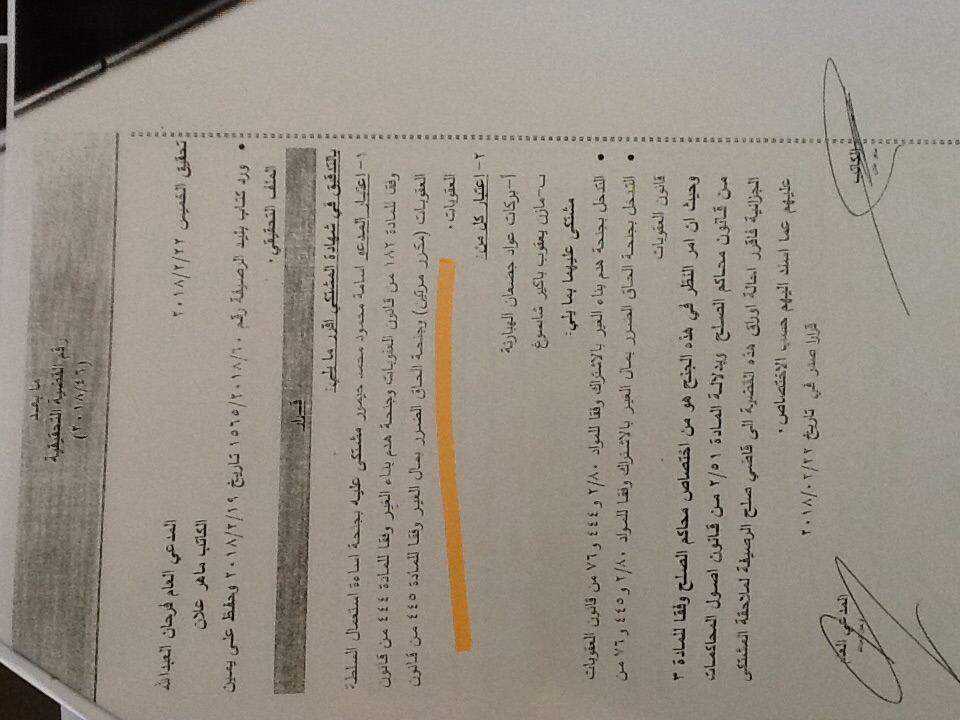 ما بعد
رقم القضية التحقيقية
(٢٠١٨/٤٦)
تحقيق الخميس ٢٠١٨/٢/٢٢
المدعي العام فرحان العبدالله
الكاتب ماهر علان
• ورد كتاب بليد الرصيفة رقم ١٥٦٥/٢٠١٨/١٠ تاريخ ٢٠١٨/٢/١٩ وحفظ على يمين
الملف التحقيقي .
قرار
بالتدقيق في شهادة المشتكي اقرر ما يلي:
١- اعتبار المدعو اسامة محمود محمد حيمور مشتكى عليه بجنحة اساءة استعمال السلطة
وفقا للمادة ١٨٢ من قانون العقوبات وجنحة هدم بناء الغير وفقا للمادة ٤٤٤ من قانون
العقوبات (مكرر مرتين) وجنحة الحاق الضرر بمال الغير وفقا للمادة ٤٤٥ من قانون
العقوبات .
٢- اعتبار كل من:
أ- بركات عواد جصعان الهبارنة
ب- مازن يعقوب باكير شانسوغ
مشتكى عليهما بما يلي:
• التدخل بجنحة هدم بناء الغير بالاشتراك وفقا للمواد ٢/٨٠ و ٤٤٤ و ٧٦ من قانون العقوبات
• التدخل بجنحة الحاق الضرر بمال الغير بالاشتراك وفقا للمواد ٢/٨٠ و ٤٤٥ و ٧٦ من
قانون العقوبات
وحيث ان امر النظر في هذه الجنح هو من اختصاص محاكم الصلح وفقا للمادة ٣
من قانون محاكم الصلح وبدلالة المادة ٢/٥١ من قانون اصول المحاكمات
الجزائية فاقرر احالة اوراق هذه القضية الى قاضي صلح الرصيفة لملاحقة المشتكى
عليهم عما اسند اليهم حسب الاختصاص .
قرارا صدر في تاريخ ٢٠١٨/٠٢/٢٢
الكاتب
المدعي العام